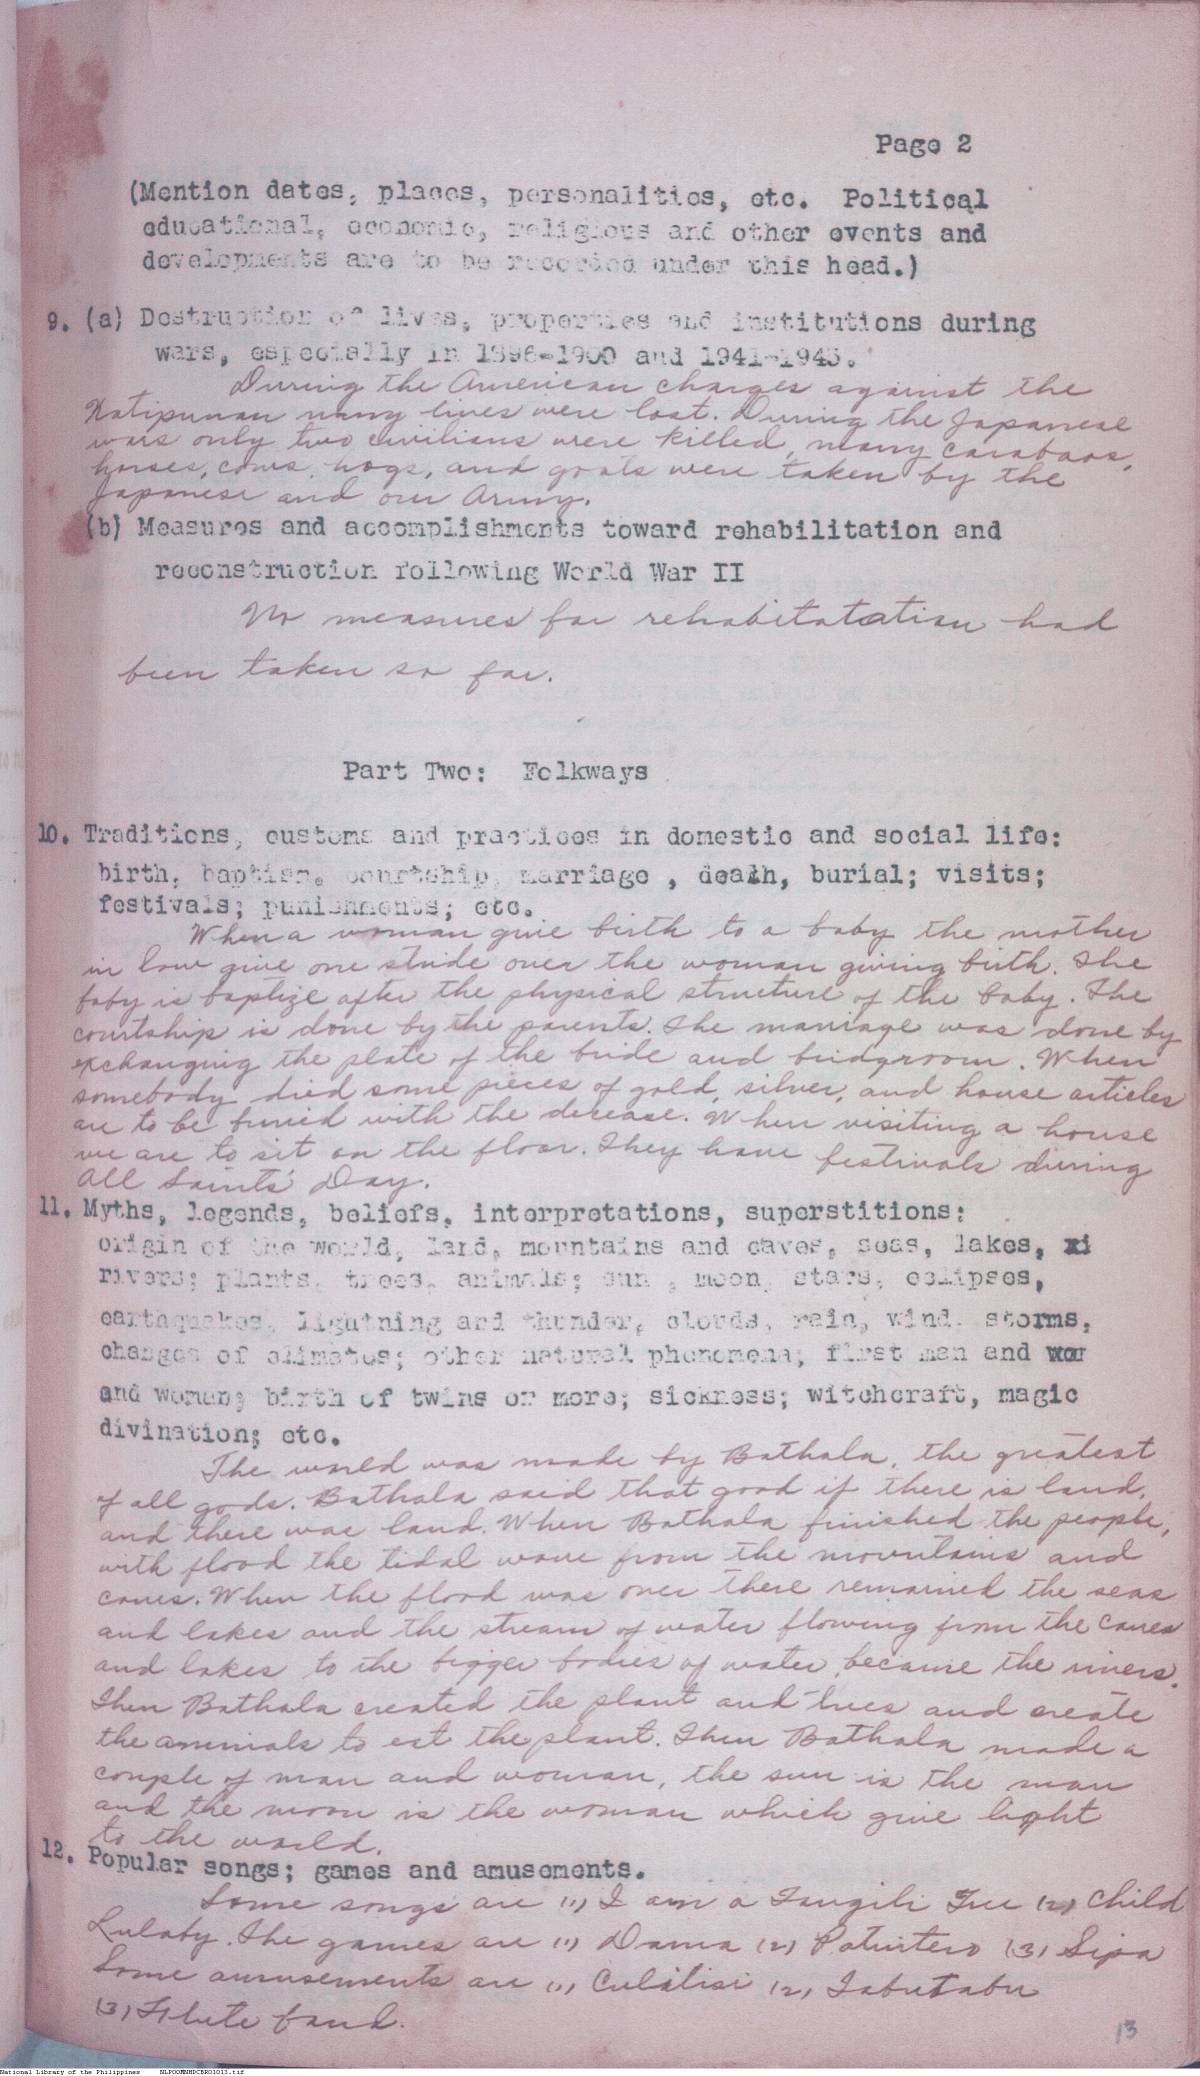 Page 2
(Mention dates, places, personalities, etc. Political
educational, economic, religious and other events and
developments are to be recorded under this head.)
9. (a) Destruction of lives, properties and institutions during
wars, especially in 1896-1900 and 1941-1945.
During the American charges against the
Katipunan many lives were lost. During the Japanese
wars only two civilians were killed, many carabaos,
horses, cows, hogs, and goats were taken by the
Japanese and our Army.
(b) Measures and accomplishments toward rehabilitation and
reconstruction following World War II
No measures for rehabitatation had
been taken so far.
Part Two: Folkways
10. Traditions, customs and practices in domestic and social life:
birth, baptism, courtship, marriage , death, burial; visits;
festivals; punishments; etc.
When a woman give birth to a baby the mother
in law give one stride over the woman giving birth. The
baby is baptize after the physical structure of the baby. The
courtship is done by the parents. The marriage was done by
exchanging the plate of the bride and bridgroom. When
somebody died some pieces of gold, silver, and house articles
are to be buried with the decease. When visiting a house
we are to sit on the floor. They have festivals during
All Saints' Day.
11. Myths, legends, beliefs, interpretations, superstitions:
origin of the world, land, mountains and caves, seas, lakes, xi
rivers; plants, trees, animals; sun , moon, stars, eclipses,
earthquakes, lightning and thunder, clouds, rain, wind, storms,
changes of climates; other natural phenomena; first man and wor
and woman; birth of twins or more; sickness; witchcraft, magic
divination; etc.
The world was made by Bathala, the greatest
of all gods. Bathala said that good if there is land,
and there was land. When Bathala finished the people,
with flood the tidal wave from the mountains and
caves. When the flood was over there remained the seas
and lakes and the stream of water flowing from the caves
and lakes to the bigger bodies of water became the rivers.
Then Bathala created the plant and trees and create
the animals to eat the plant. Then Bathala made a
couple of man and woman, the sun is the man
and the moon is the woman which give light
to the world.
12. Popular songs; games and amusements.
Some songs are (1) I am a Tangili Tree (2) Child
Lulaby. The games are (1) Dama (2) Patintero (3) Sipa
Some amusements are (1) Culilisi (2) Tabutabu
(3) Flute band.
13
National Library of the Philippines NLPOOMNHDCBRO1013.tif